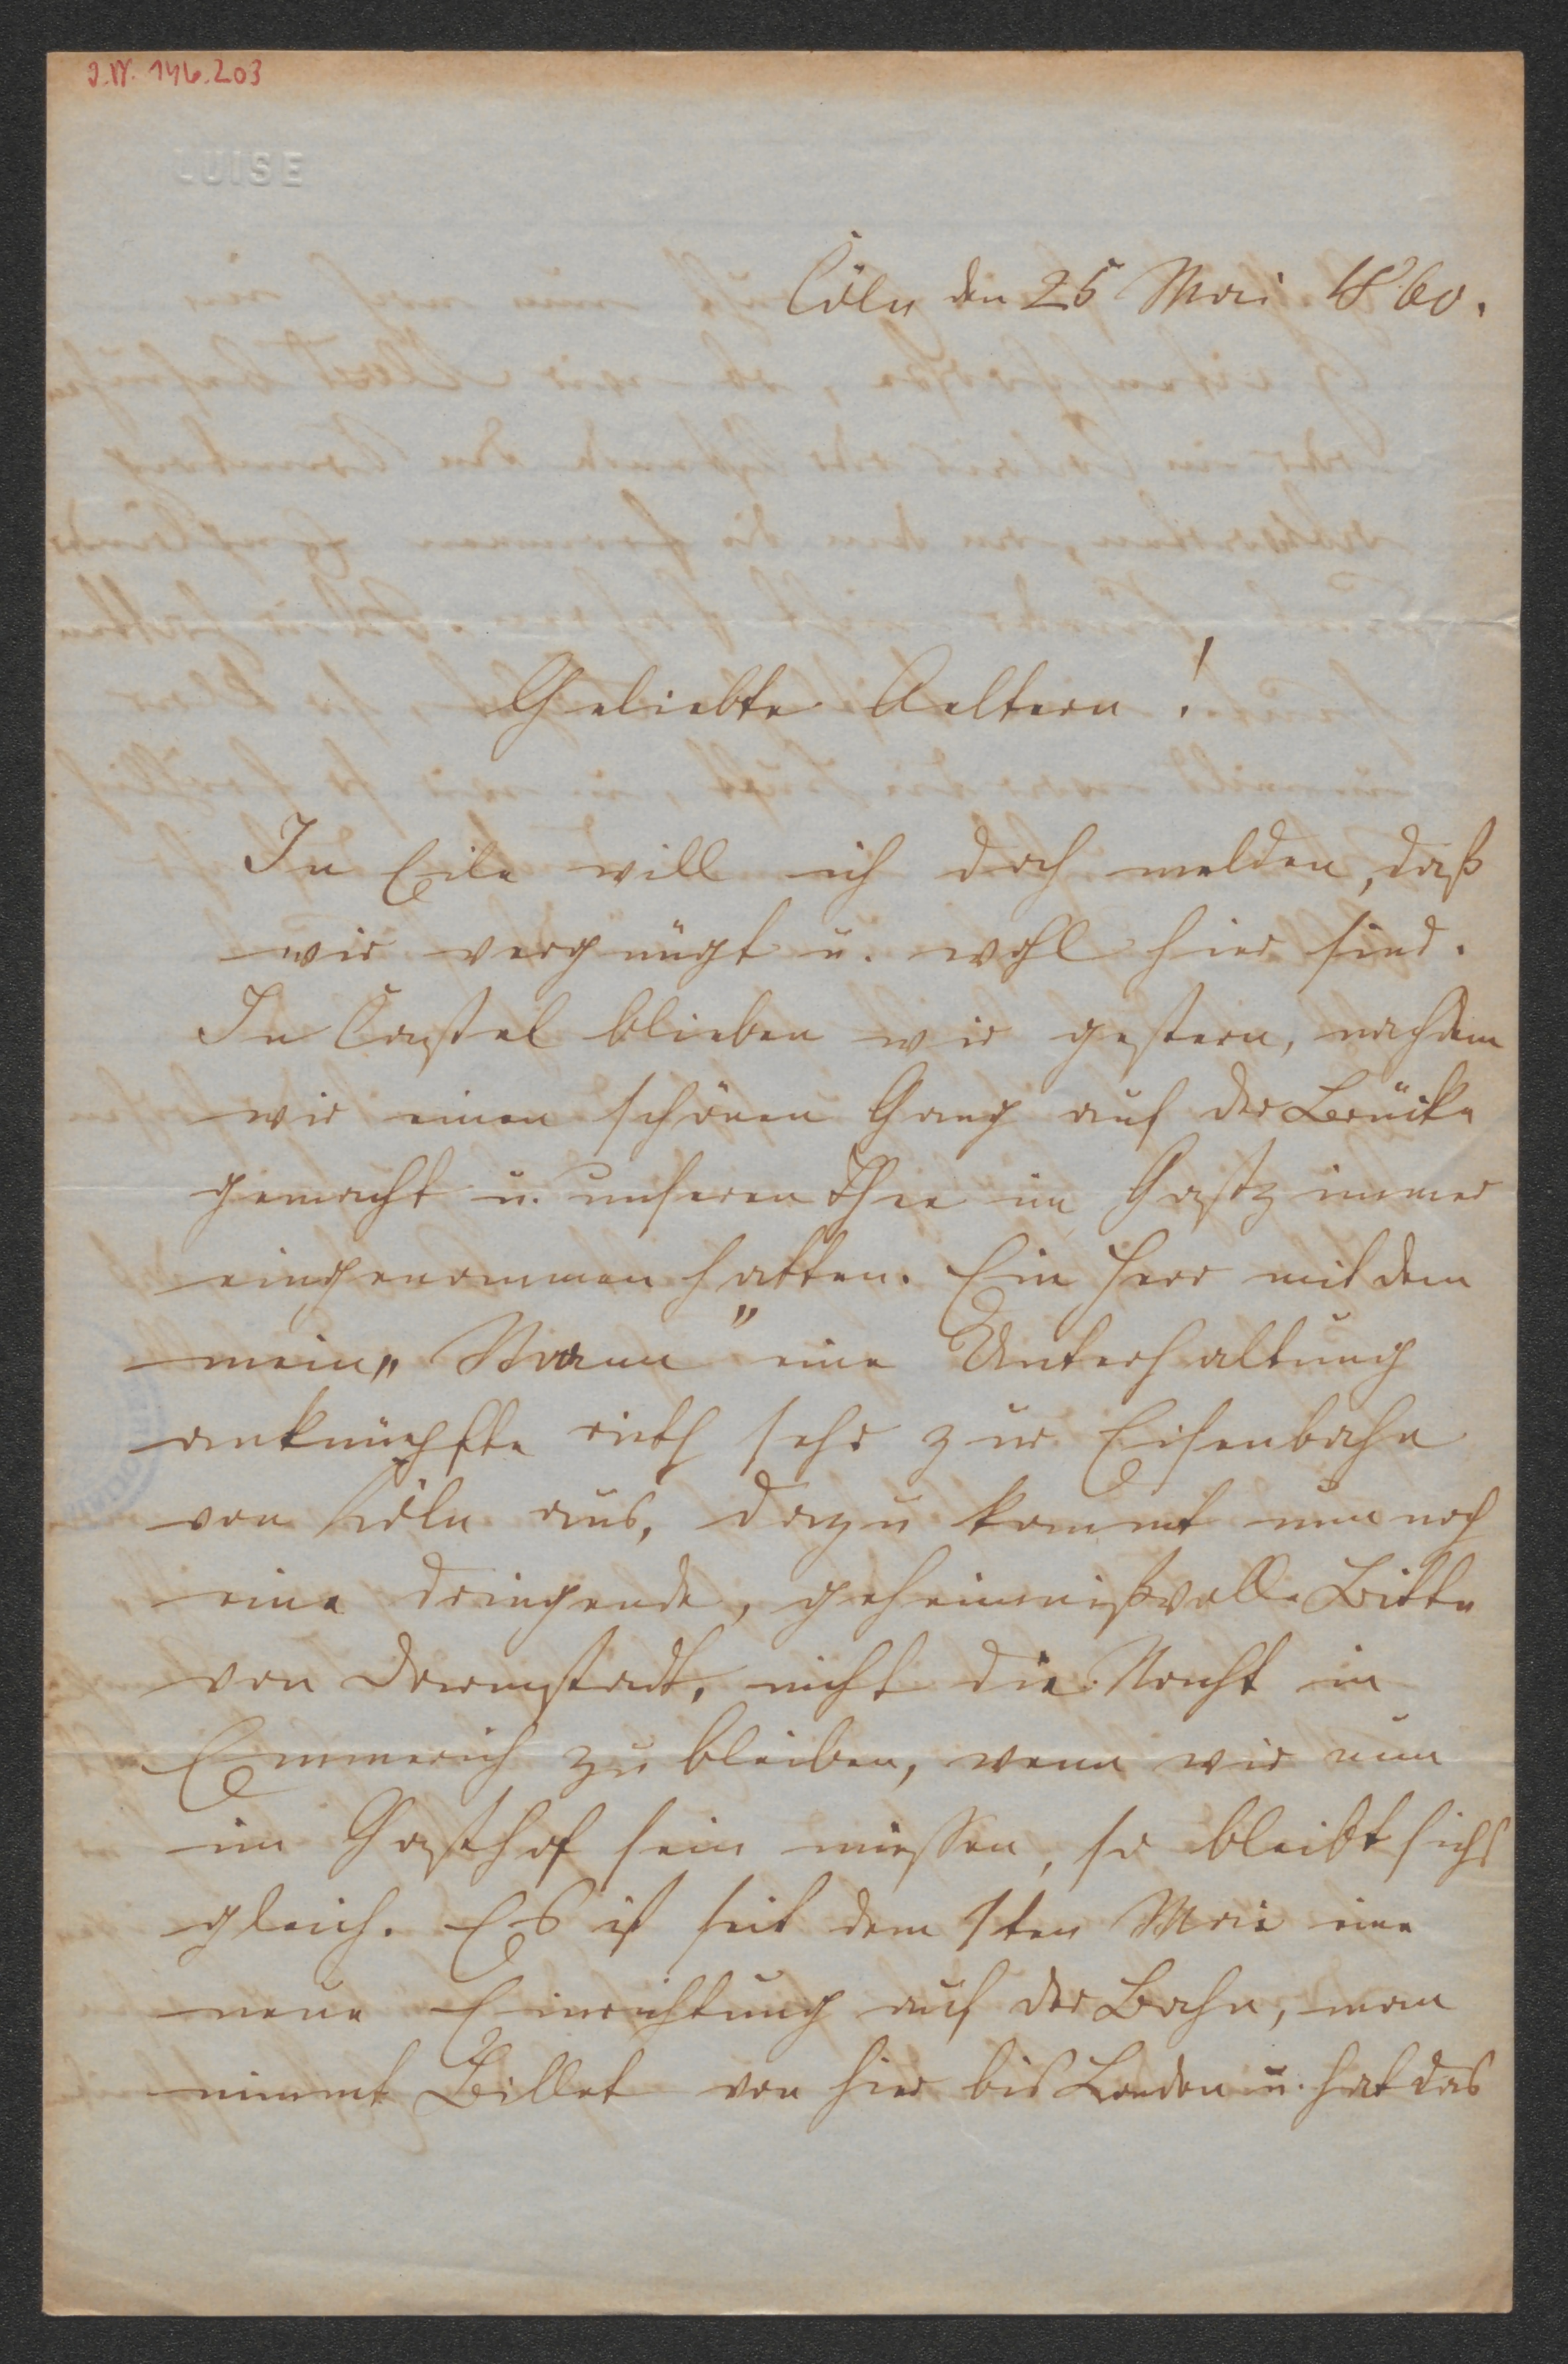 J.N. 146.203
LUISE
Cöln den 25 Mai 1860.
Geliebte Aeltern!
In Eile will ich doch melden, daß
wir vergnügt u. wohl hier sind.
In Castel blieben wir gestern, nachdem
wir einen schönen Gang auf der Brücke
gemacht u. unseren Thee im Gastzimmer
eingenommen hatten. Ein Herr mit dem
mein „Mann" eine Unterhaltung
anknüpfte rieth sehr zur Eisenbahn
von Cöln aus, dazu kommt nun noch
eine dringende, geheimnißvolle Bitte
von Darmstadt, nicht die Nacht in
Emmerich zu bleiben, wenn wir nun
im Gasthof sein müssen, so bleibt sichs
gleich. Es ist seit dem 1ten Mai eine
neue Einrichtung auf der Bahn, man
nimmt Billet von hier bis London u. hat das